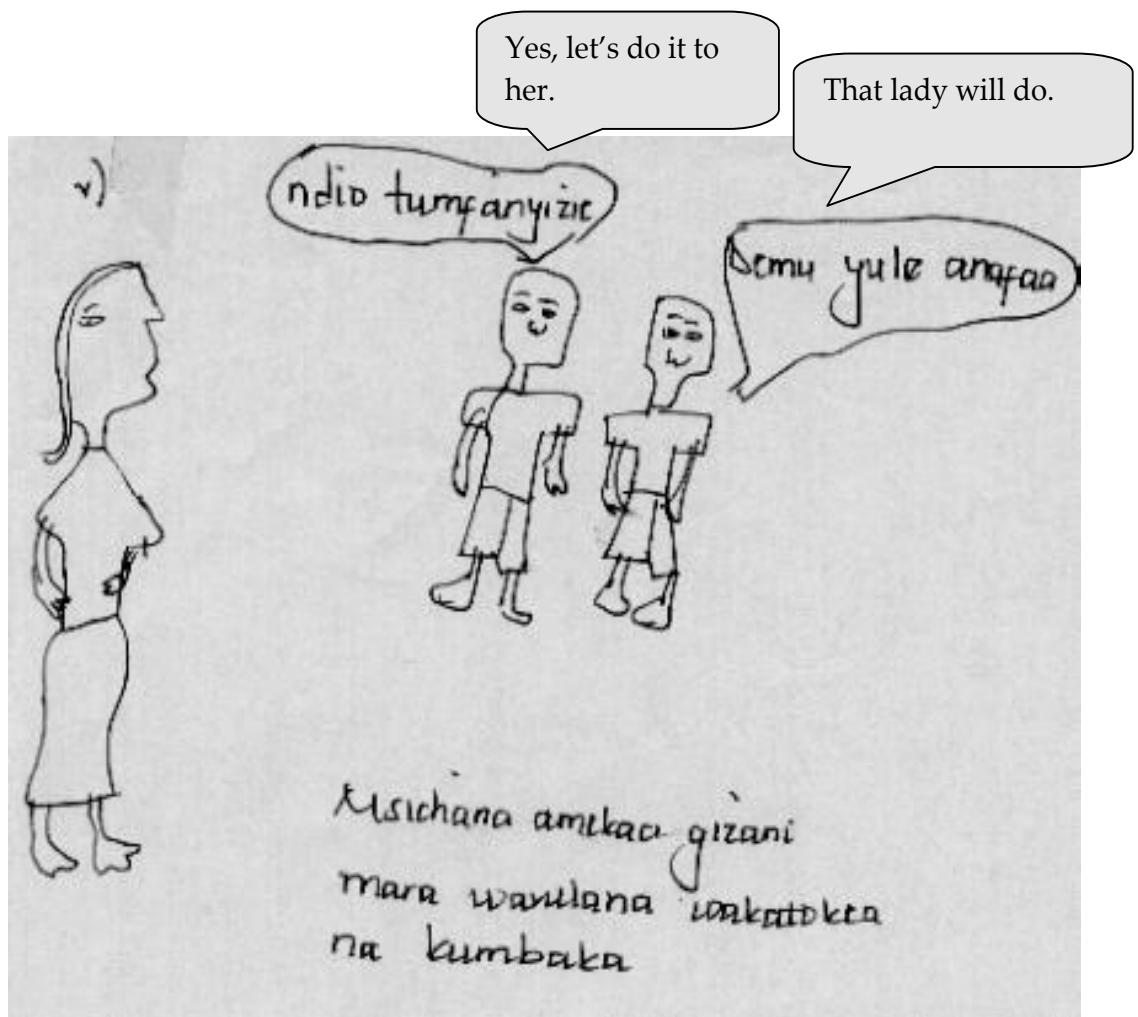 Yes, let's do it to
her.
That lady will do.
2)
ndio tumfanyizie
Demu yule anafaa
Msichana amekaa gizani
mara wavulana wakatokea
na kumbaka